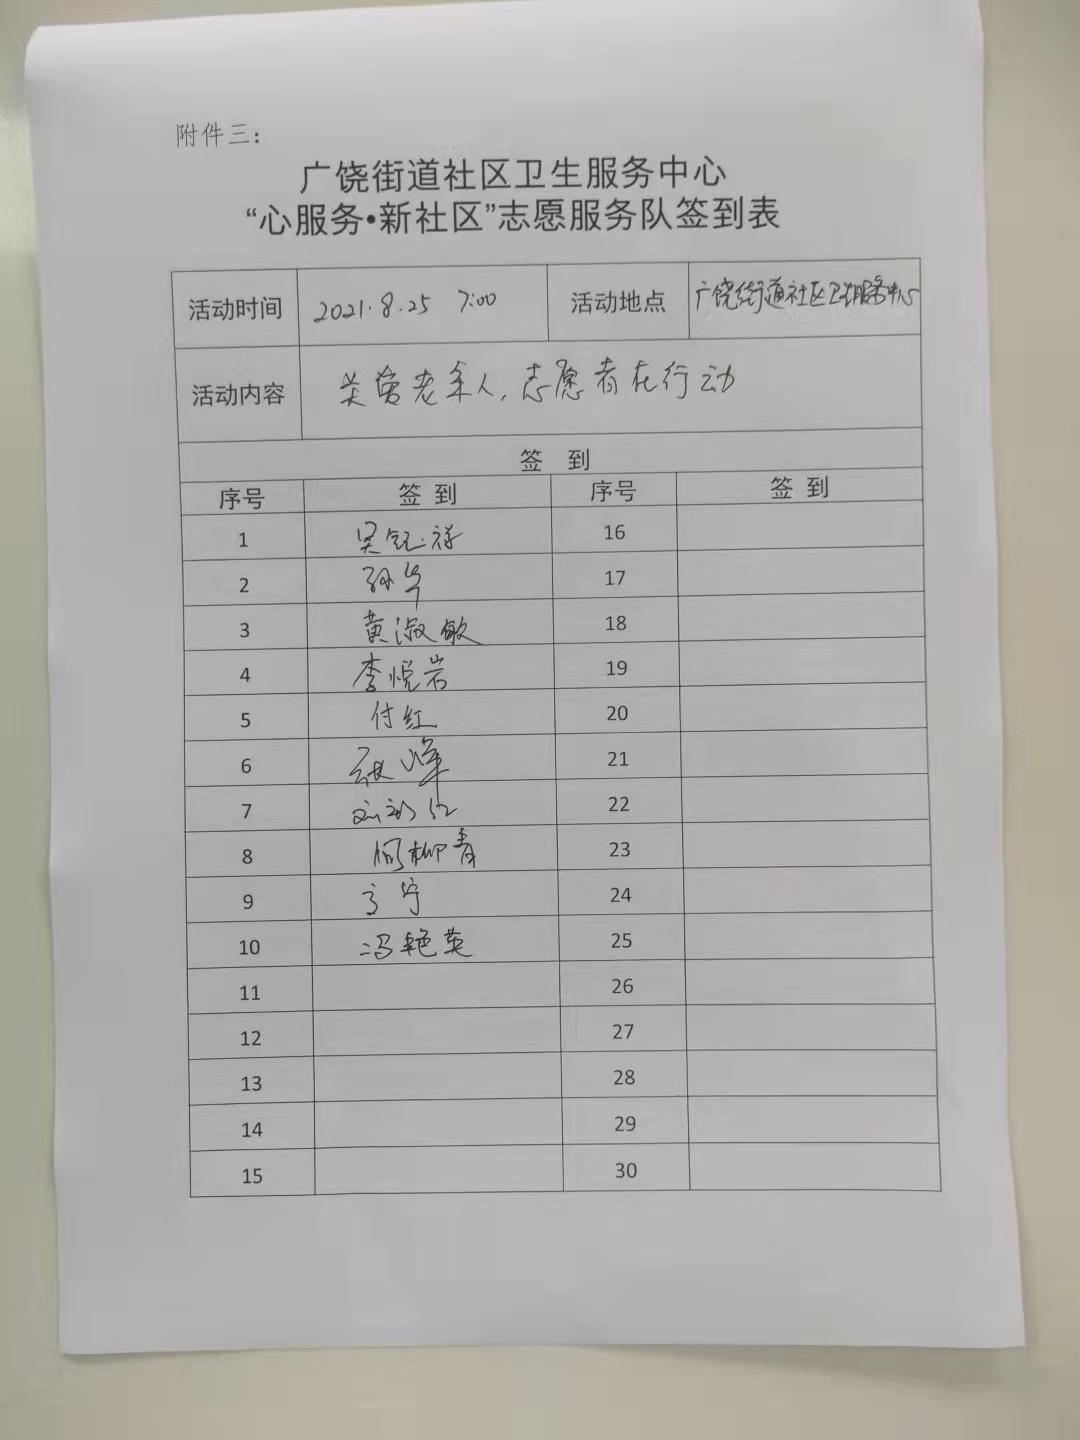 附件三：
广饶街道社区卫生服务中心
“心服务•新社区”志愿服务队签到表
活动时间 2021.8.25 7:00 活动地点 广饶街道社区卫生服务中心
活动内容 关爱老年人,志愿者在行动
签 到
序号 签 到 序号 签 到
1 吴钰祥 16
2 孙华 17
3 黄淑敏 18
4 李悦岩 19
5 付红 20
6 21
7 22
8 何柳青 23
9 宁 24
10 冯艳英 25
11 26
12 27
13 28
14 29
15 30